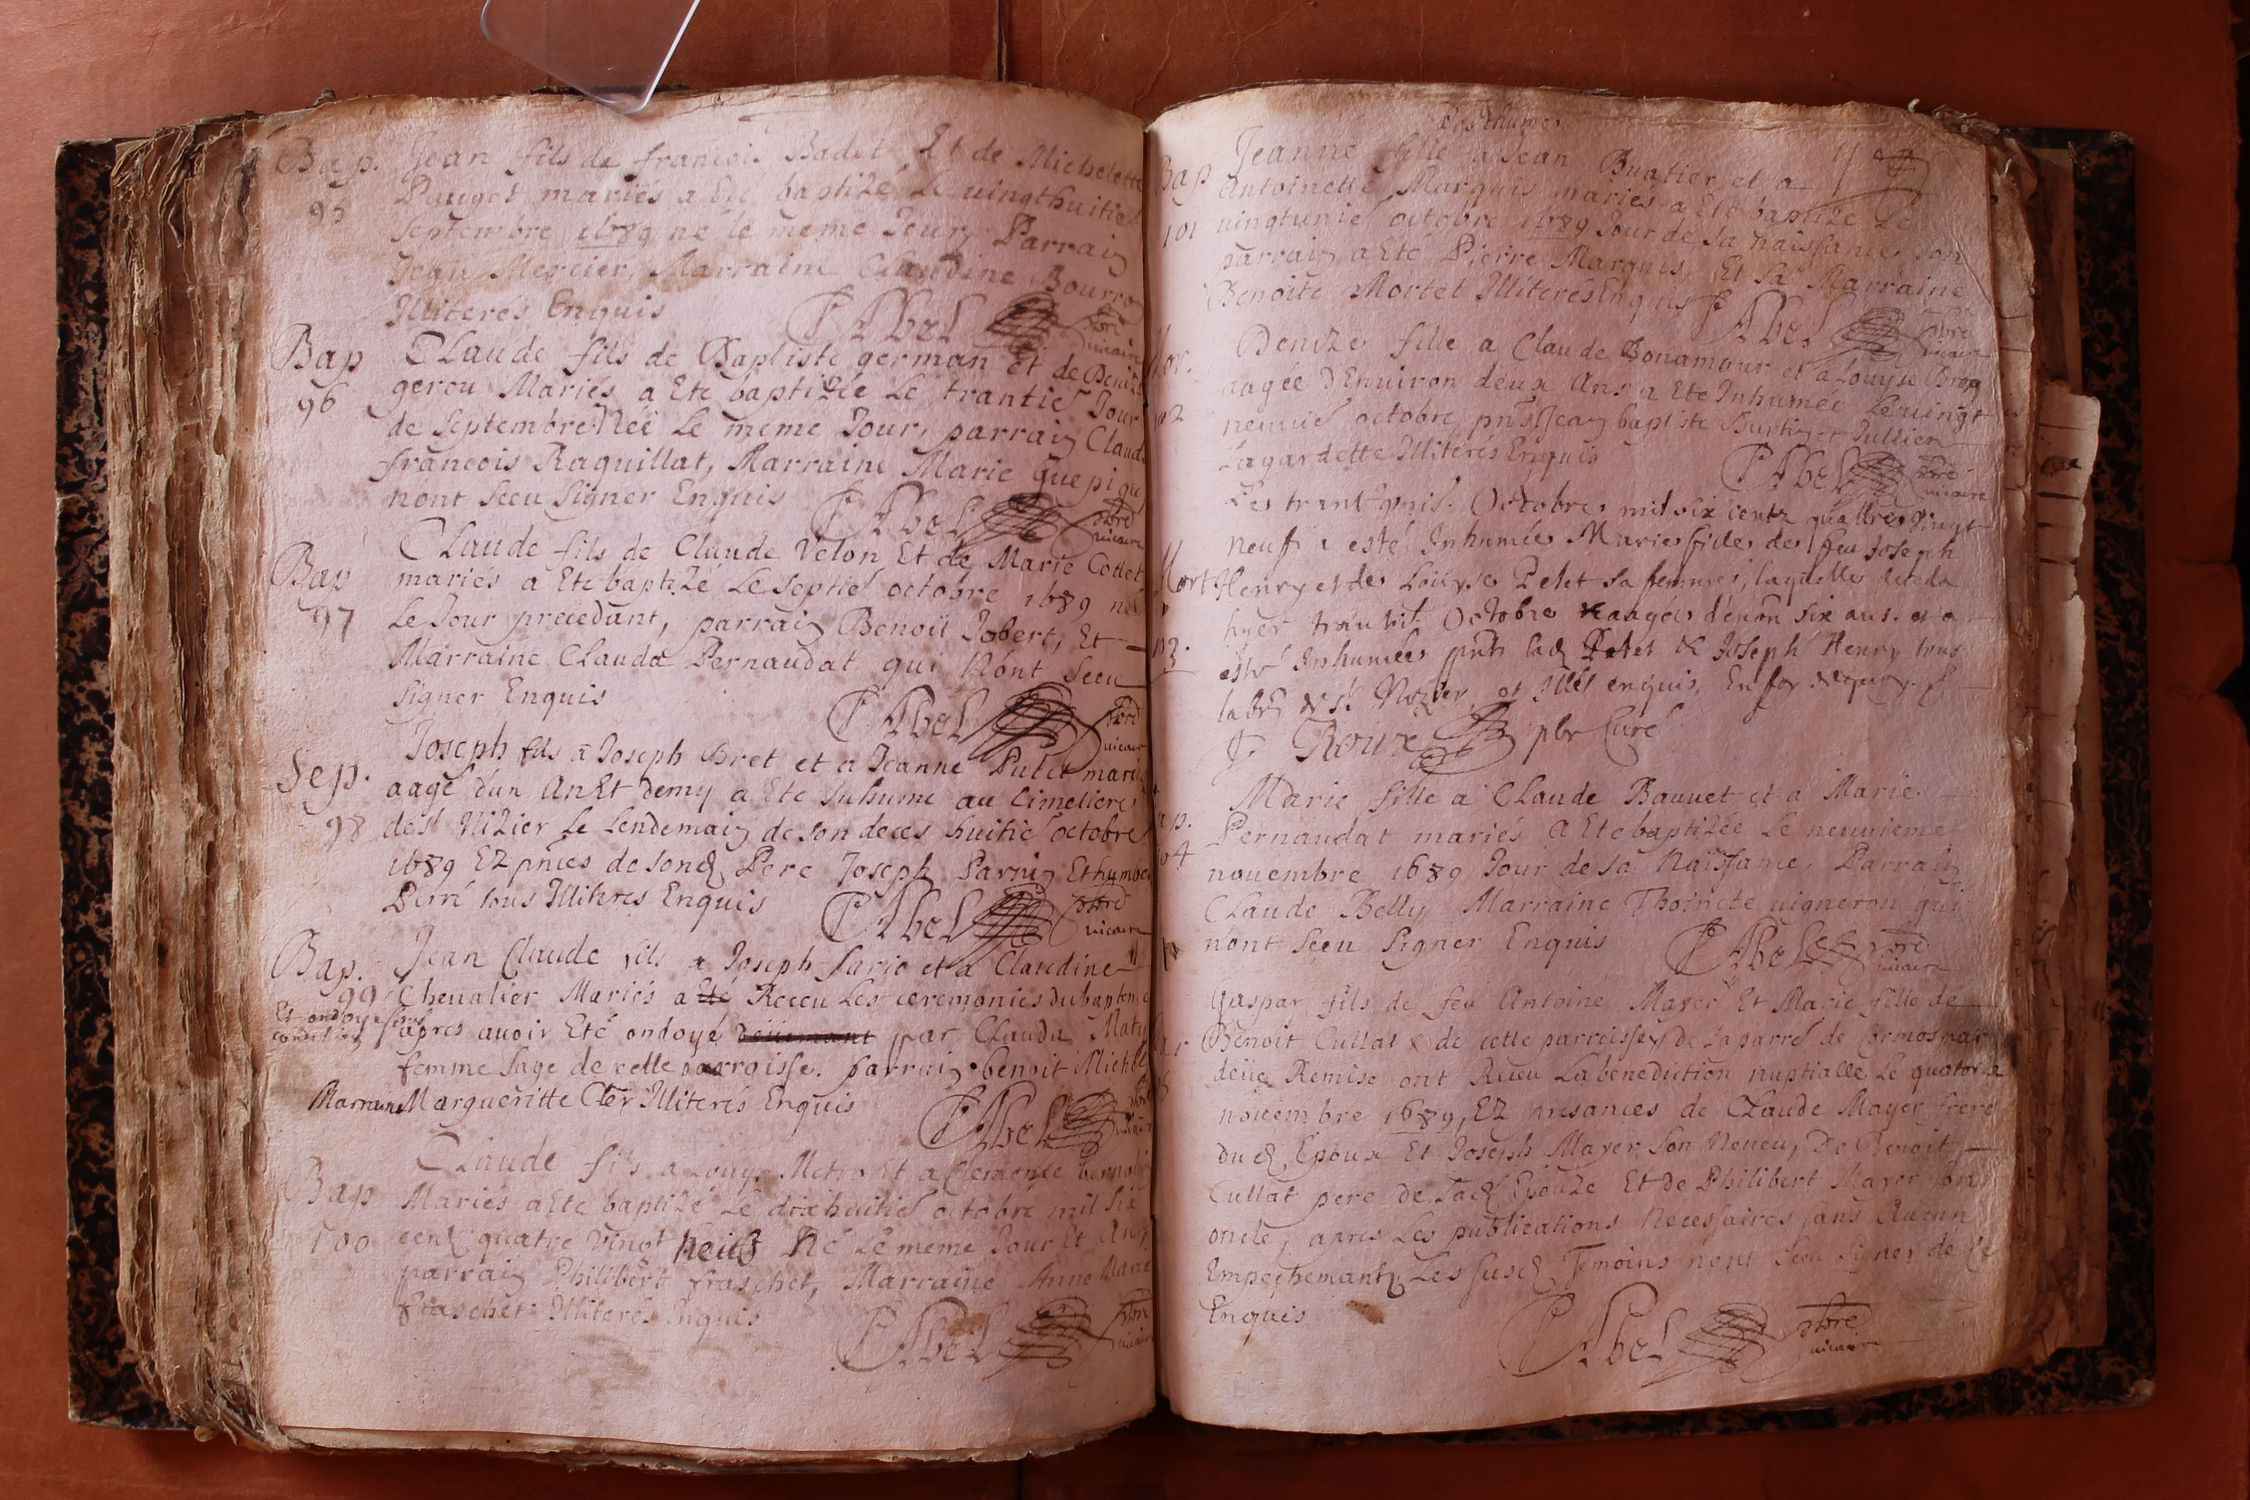 Bap. Jean fils de francois Badet Et de Michelette
95 Pauget mariés a Eté baptizé Le uingthuitie
Septembre 1689 né le meme Jour, Parrain
Jean Mercier, Marraine Claudine Bourro
Illiterés Enquis C Abel pbre uicaire
Bap Claude fils de Baptiste german et de Benoite
96 gerou Mariés a Ete baptizée Le trantie Jour
de Septembre Née Le meme Jour, parrain Claude
francois Raquillat, Marraine Marie
nont sceu Signer Enquis C Abel pbre uicaire
Bap Claude fils de Claude Velon Et de Marie Collet
97 mariés a Ete baptizé Le Septie octobre 1689 né
Le Jour precedant, parrain Benoit Jobert, Et
Marraine Clauda Pernaudat qui Nont Sceu
signer Enquis C Abel pbre uicaire
Sep. Joseph fils a Joseph Bret et a Jeanne Putet mariés
98 aagé dun An Et demy a Ete Inhumé au Cimetiere
de st Nizier Le Lendemain de son deces huitie octobre
1689 EZ pnces de sond Pere Joseph Parnin Et humbe
Perré tous Illiteres Enquis C Abel pbre uicaire
Bap. Jean Claude fils a Joseph Lario et a Claudine
99 Chevalier Mariés a Eté Receu Les ceremonies du baptem
Et ondoyé sous condition apres auoir Eté ondoyé par Clauda Maty
femme sage de cette parroisse. parrain benoit Michel
Marraine Margueritte Cler Illiterés Enquis C Abel pbre uicaire
Bap Claude fils a Louys Metra Et a Clemence
100 Mariés a Ete baptizé Le dixhuitie octobre mil six
cent quatre vingt neuf Né Le meme Jour Et An,
parrain Philibert fraschet, Marraine Anne Marie
fraschet Illiterés Enquis C Abel pbre uicaire
Posthume
Bap Jeanne fille a Jean Buatier et a
101 Antoinette Marquis mariés a Ete baptizé Le
uingtunie octobre 1689 Jour de sa naissance, son
parrain a Eté Pierre Marquis Et sa Marraine
Benoite Mortet Illiterés Enquis C Abel pbre uicaire
Mor. Benoze fille a Claude Bonamour et a Louyse
102 aagée d'Enuiron deux Ans a Ete Inhumée Le uingt
neuuie octobre, pnts Jean baptiste Burtin et Jullien
Lagardette Illiterés Enquis C Abel pbre uicaire
Octobre mil six cents quattre vingt
neuf a esté Inhumée Marie fille de feu Joseph
Mort Henry et de Louyse Petet sa femme, laquelle deceda
hyer Octobre aagée denon six ans. et a
103. esté Inhumée pnts lad Petet & Joseph Henry tous
de st Nizier, et Illes enquis, En foy dequoy
Roux pbr Curé
Bap. Marie fille a Claude Bauuet et a Marie
104 Pernaudat mariés a Ete baptizée Le neuuieme
nouembre 1689 Jour de sa Naissance, Parrain
Claude Belly Marraine Thoinete uigneron qui
n'ont sceu Signer Enquis C Abel pbre uicaire
Gaspar fils de feu Antoine Mayer Et Marie fille de
Mar Benoit Cullat de cette parroisse, De la parre de Cormos par
deüe Remise ont Receu La benediction nuptialle Le quatorze
nouembre 1689, EZ presances de Claude Mayer frere
du d Epoux Et Joseph Mayer son Neueu, De Benoit
Cullat pere de lad Epouze Et de Philibert Mayer son
oncle, apres Les publications Necessaires sans Aucun
Empechemant, Les susd Temoins nont Sceu Signer de ce
Enquis C Abel pbre uicaire